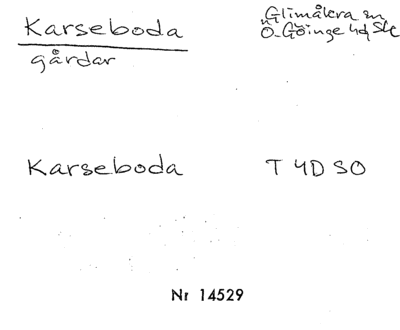 Karseboda
gårdar
Glimåkra sn
Ö. Göinge hd Sk
Karseboda T 4D SO
Nr 14529